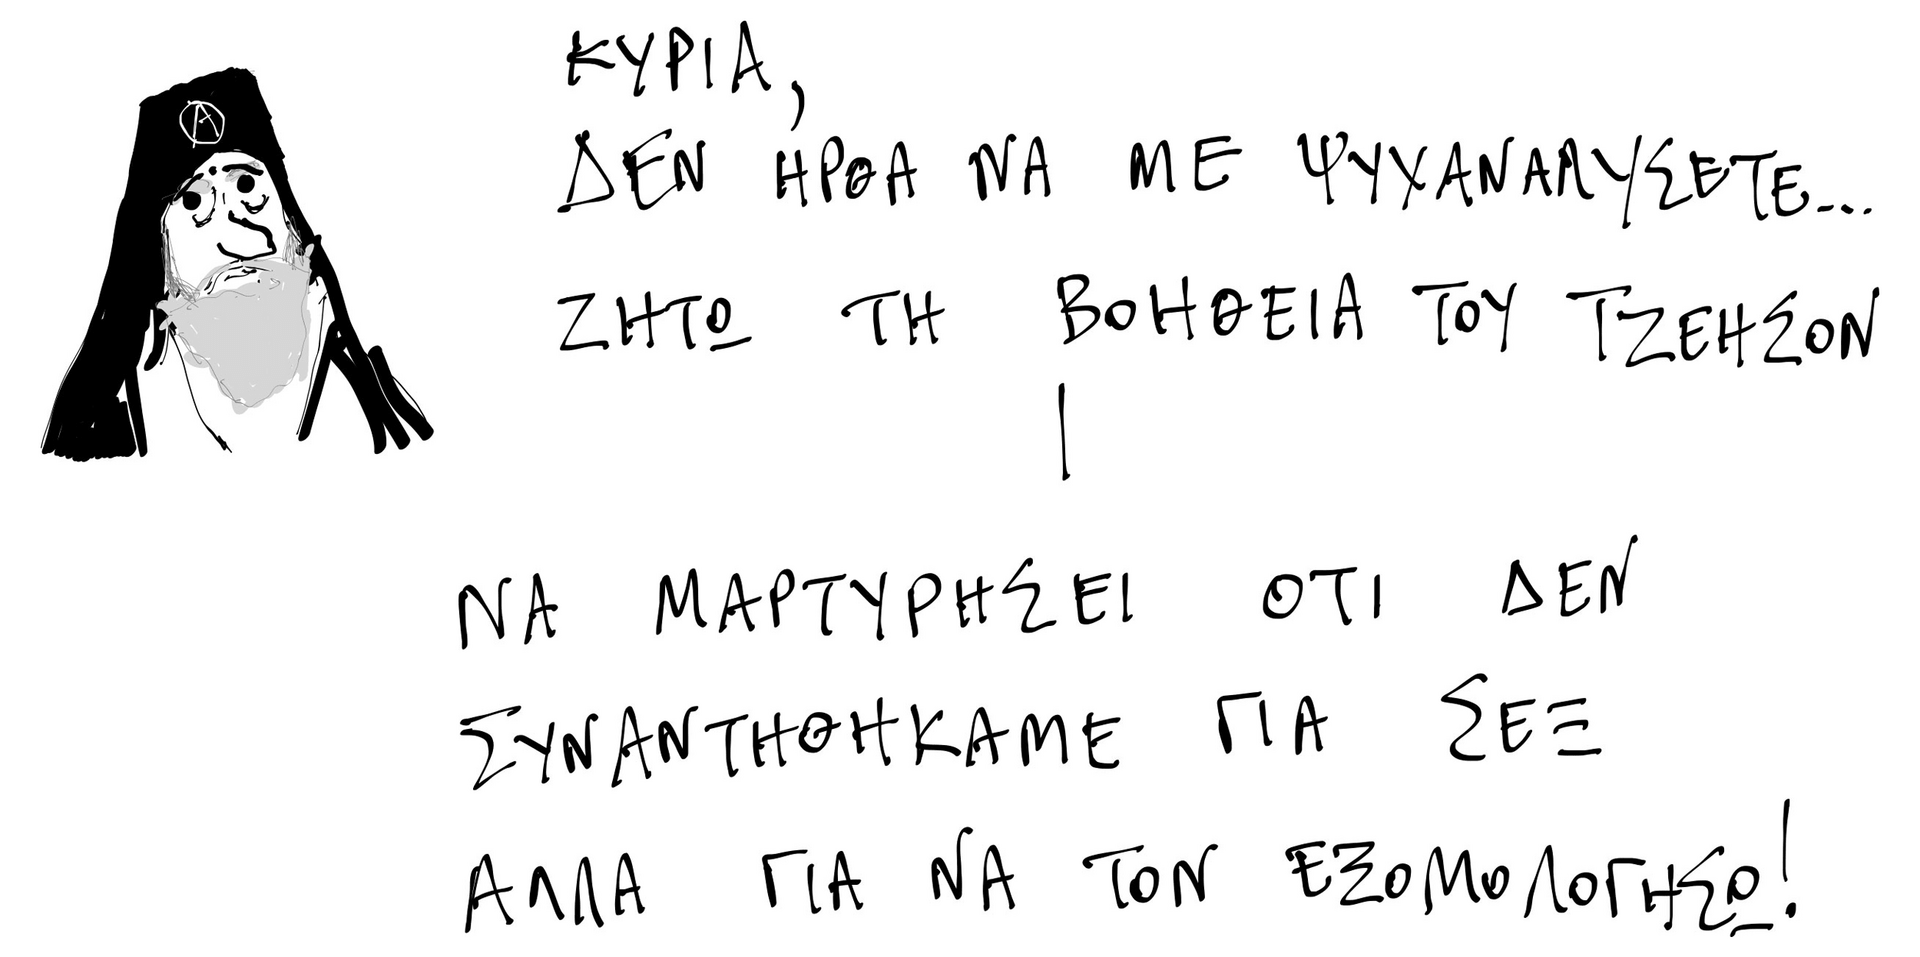 Α
ΚΥΡΙΑ,
ΔΕΝ ΗΡΘΑ ΝΑ ΜΕ ΨΥΧΑΝΑΛΥΣΕΤΕ...
ΖΗΤΩ ΤΗ ΒΟΗΘΕΙΑ ΤΟΥ ΤΖΕΗΣΟΝ
ΝΑ ΜΑΡΤΥΡΗΣΕΙ ΟΤΙ ΔΕΝ
ΣΥΝΑΝΤΗΘΗΚΑΜΕ ΓΙΑ ΣΕΞ
ΑΛΛΑ ΓΙΑ ΝΑ ΤΟΝ ΕΞΟΜΟΛΟΓΗΣΩ!